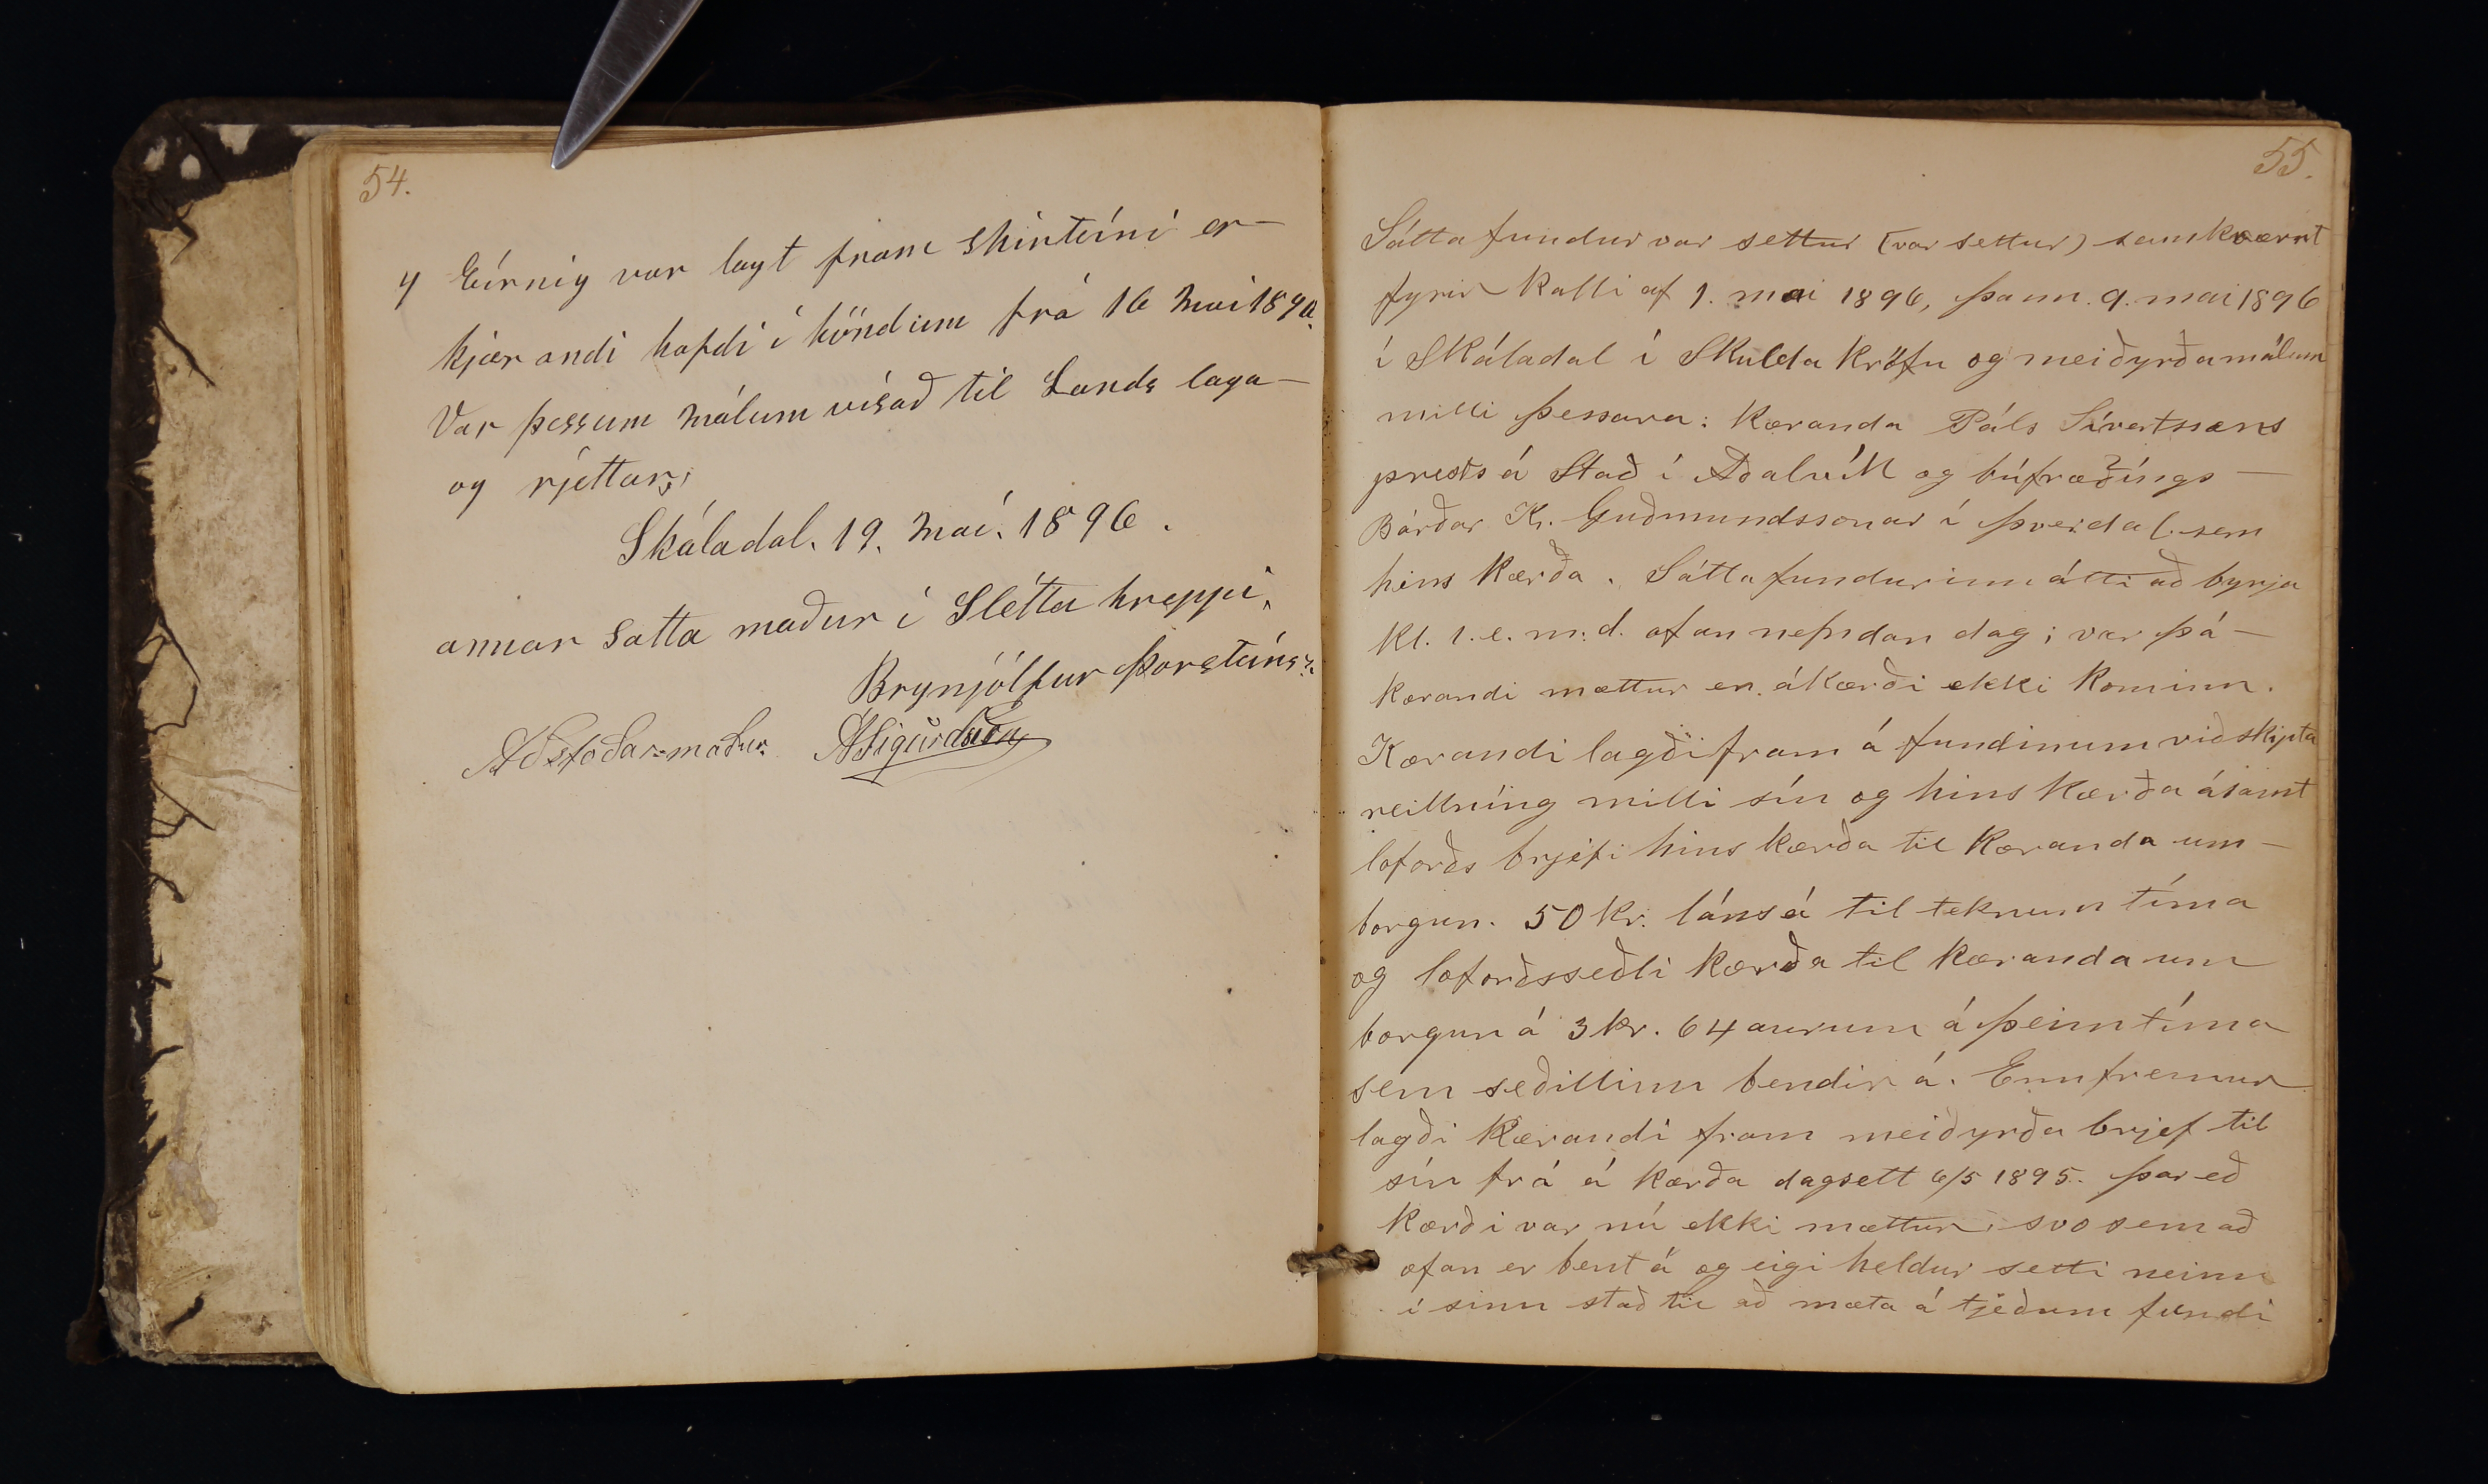 54.
4 Eírnig var lagt fram skírteíni er-
kjærandi hafdi í höndum frá 16 Maí 1890.
Var þessum málum vísað til Lands laga-
og rjettar;
Skáladal. 19. Maí. 1896.
annar satta maður í Slétta hreppi,
Brynjólfur Þorsteínss.
Aðstoðar=maður. ASigurdsson
55.
Sáttafundur var settur (var settur) samkvæmt
fyrir kalli af 1. mai 1896, þann. 9. mai 1896
í Skáladal í Skulda kröfu og meiðyrðamálum
milli þessara: kæranda Páls Sívertssens
prests á Stað í Aðalvík og búfræðíngs-
Bárðar K. Guðmundssonar í Þverdal. sem
hins kærða. Sáttafundurinn átti að byrja
kl. 1. e. m. d. ofan nefndan dag; var þá-
kærandi mættur en ákærði ekki kominn.
Kærandi lagði fram á fundinum viðskipta
reikníng milli sín og hins kærða ásamt
loforðs brjefi hins kærða til kæranda um-
borgun. 50 kr. láns á til teknum tíma
og loforðsseðli kærða til kæranda um
borgun á 3 kr. 64 aurum á þeim tíma
sem seðillinn bendir á. Ennfremur
lagði kærandi fram meiðyrða brjef til
sín frá á kærða dagsett 6/5 1895. Þar eð
kærði var nú ekki mættur, svo sem að
ofan er bent á og eigi heldur setti neinn
í sinn stað til að mæta á tjeðum fundi